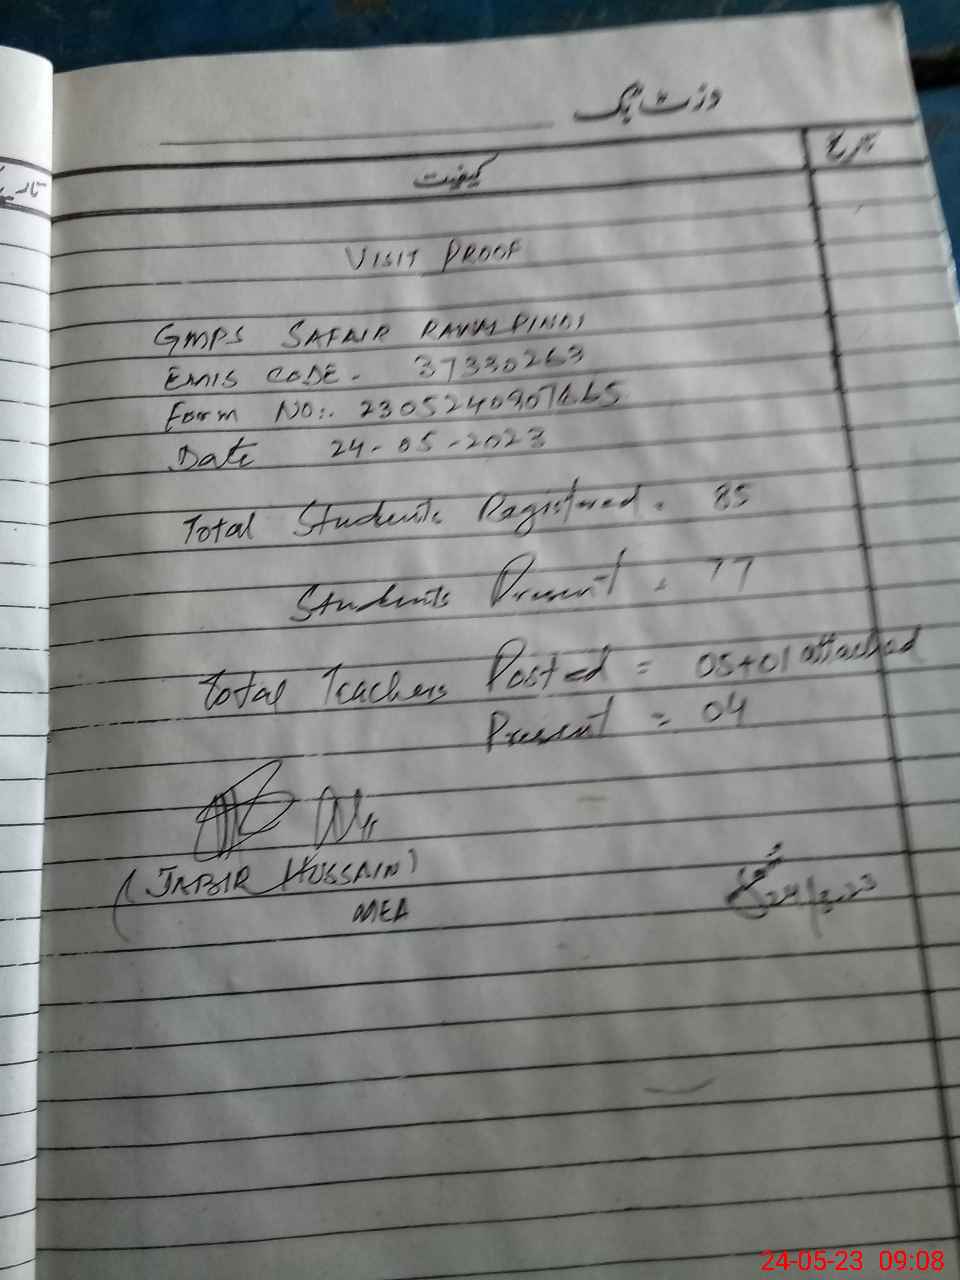 وزٹ بک
کیفیت
تاریخ
VISIT PROOF
GMPS SAFAIR RAWALPINDI
EMIS CODE. 37330263
Form NO:.
Date 24-05-2023
Total Students Registered. 85
Students Present = 77
Total Teachers Posted = 05+01 attached
Present = 04
(JABIR HUSSAIN)
MEA
24-05-23 09:08